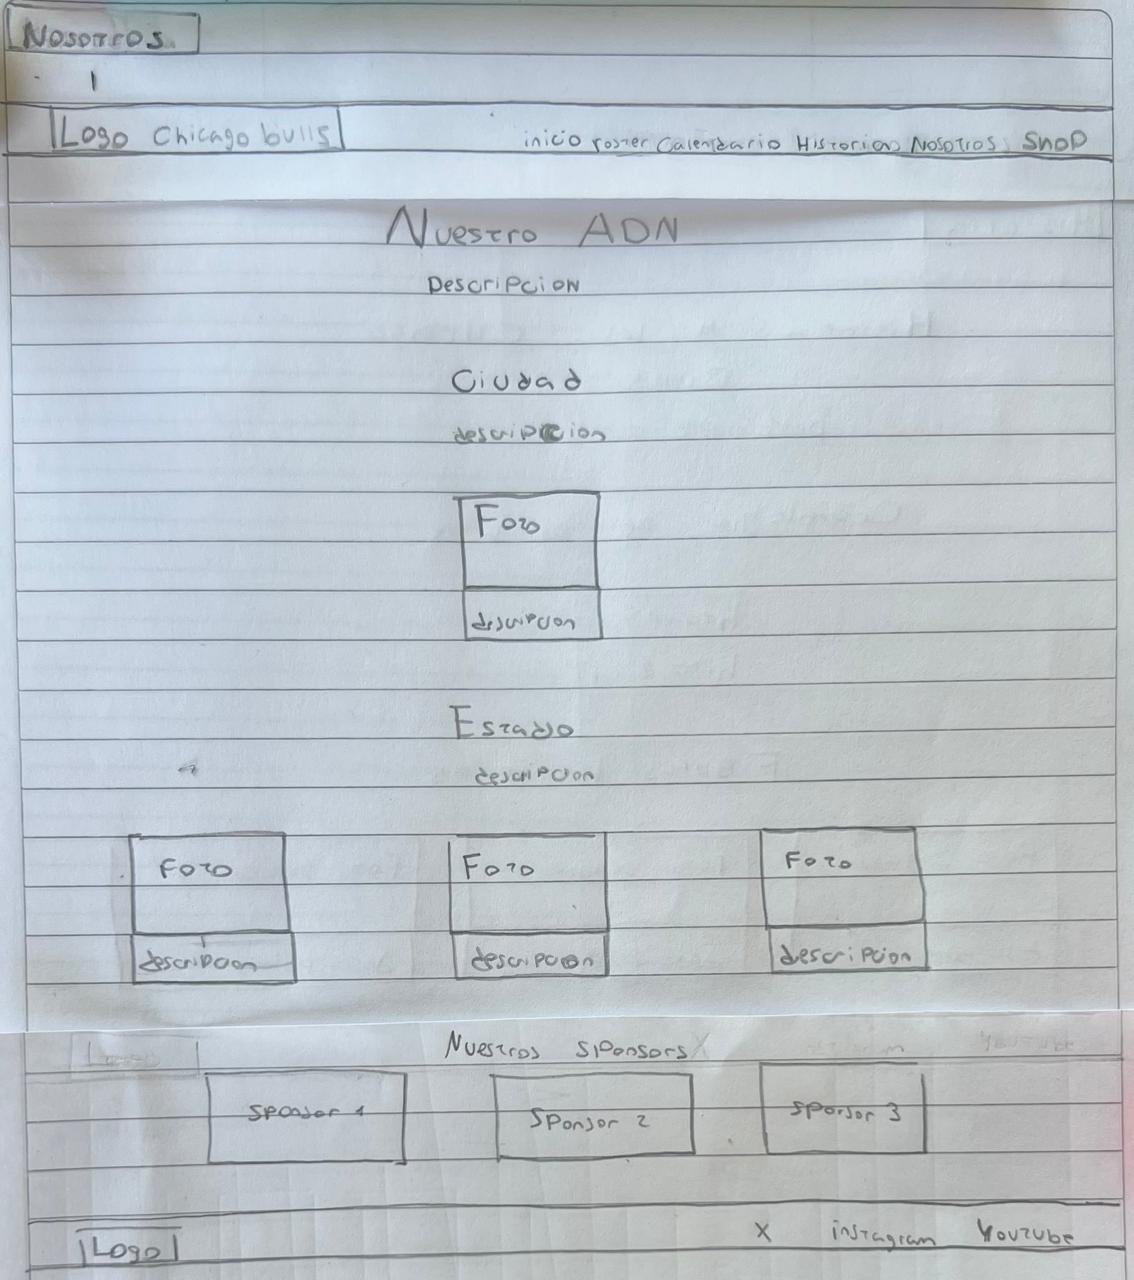 Nosotros
Logo Chicago bulls inicio roster Calendario Historia Nosotros Shop
Nuestro ADN
Descripcion
Ciudad
descripcion
Foto
descripcion
Estadio
descripcion
Foto Foto Foto
descripcion descripcion descripcion
Nuestros sponsors
sponsor 1 Sponsor 2 sponsor 3
Logo X instagram Youtube